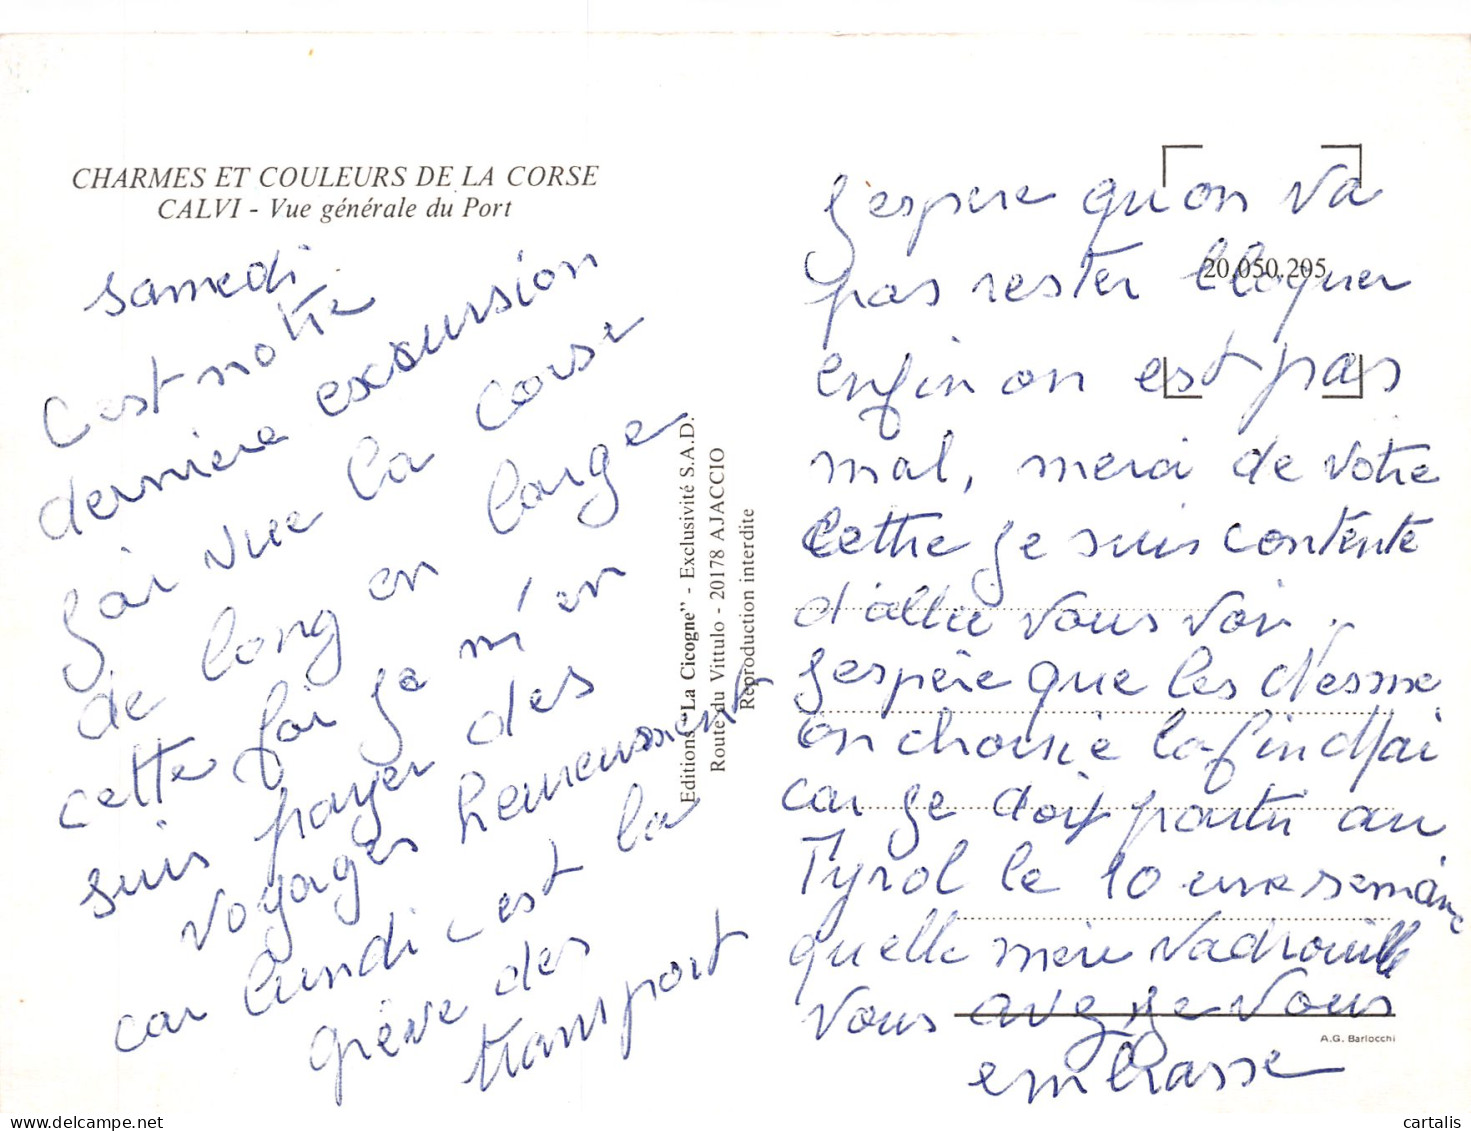 CHARMES ET COULEURS DE LA CORSE
CALVI - Vue générale du Port
samedi
C'est notre
dernière excursion
j'ai vue la corse
de long en large
cette foi je m'en
suis payer des
voyages heureusement
car lundi c'est la
grève des
transport
Editions "La Cicogne" - Exclusivité S.A.D.
Route du Vittulo - 20178 AJACCIO
Reproduction interdite
20.050.205
J'espère qu'on va
pas rester bloquer
enfin on est pas
mal, merci de votre
lettre je suis contente
d'aller vous voir.
J'espère que les
on choisie la fin d'Mai
car je dois partir au
Tyrol le 10 une semaine
quelle mère vadrouille
vous avez je vous
embrasse
A.G. Barlocchi
cartalis